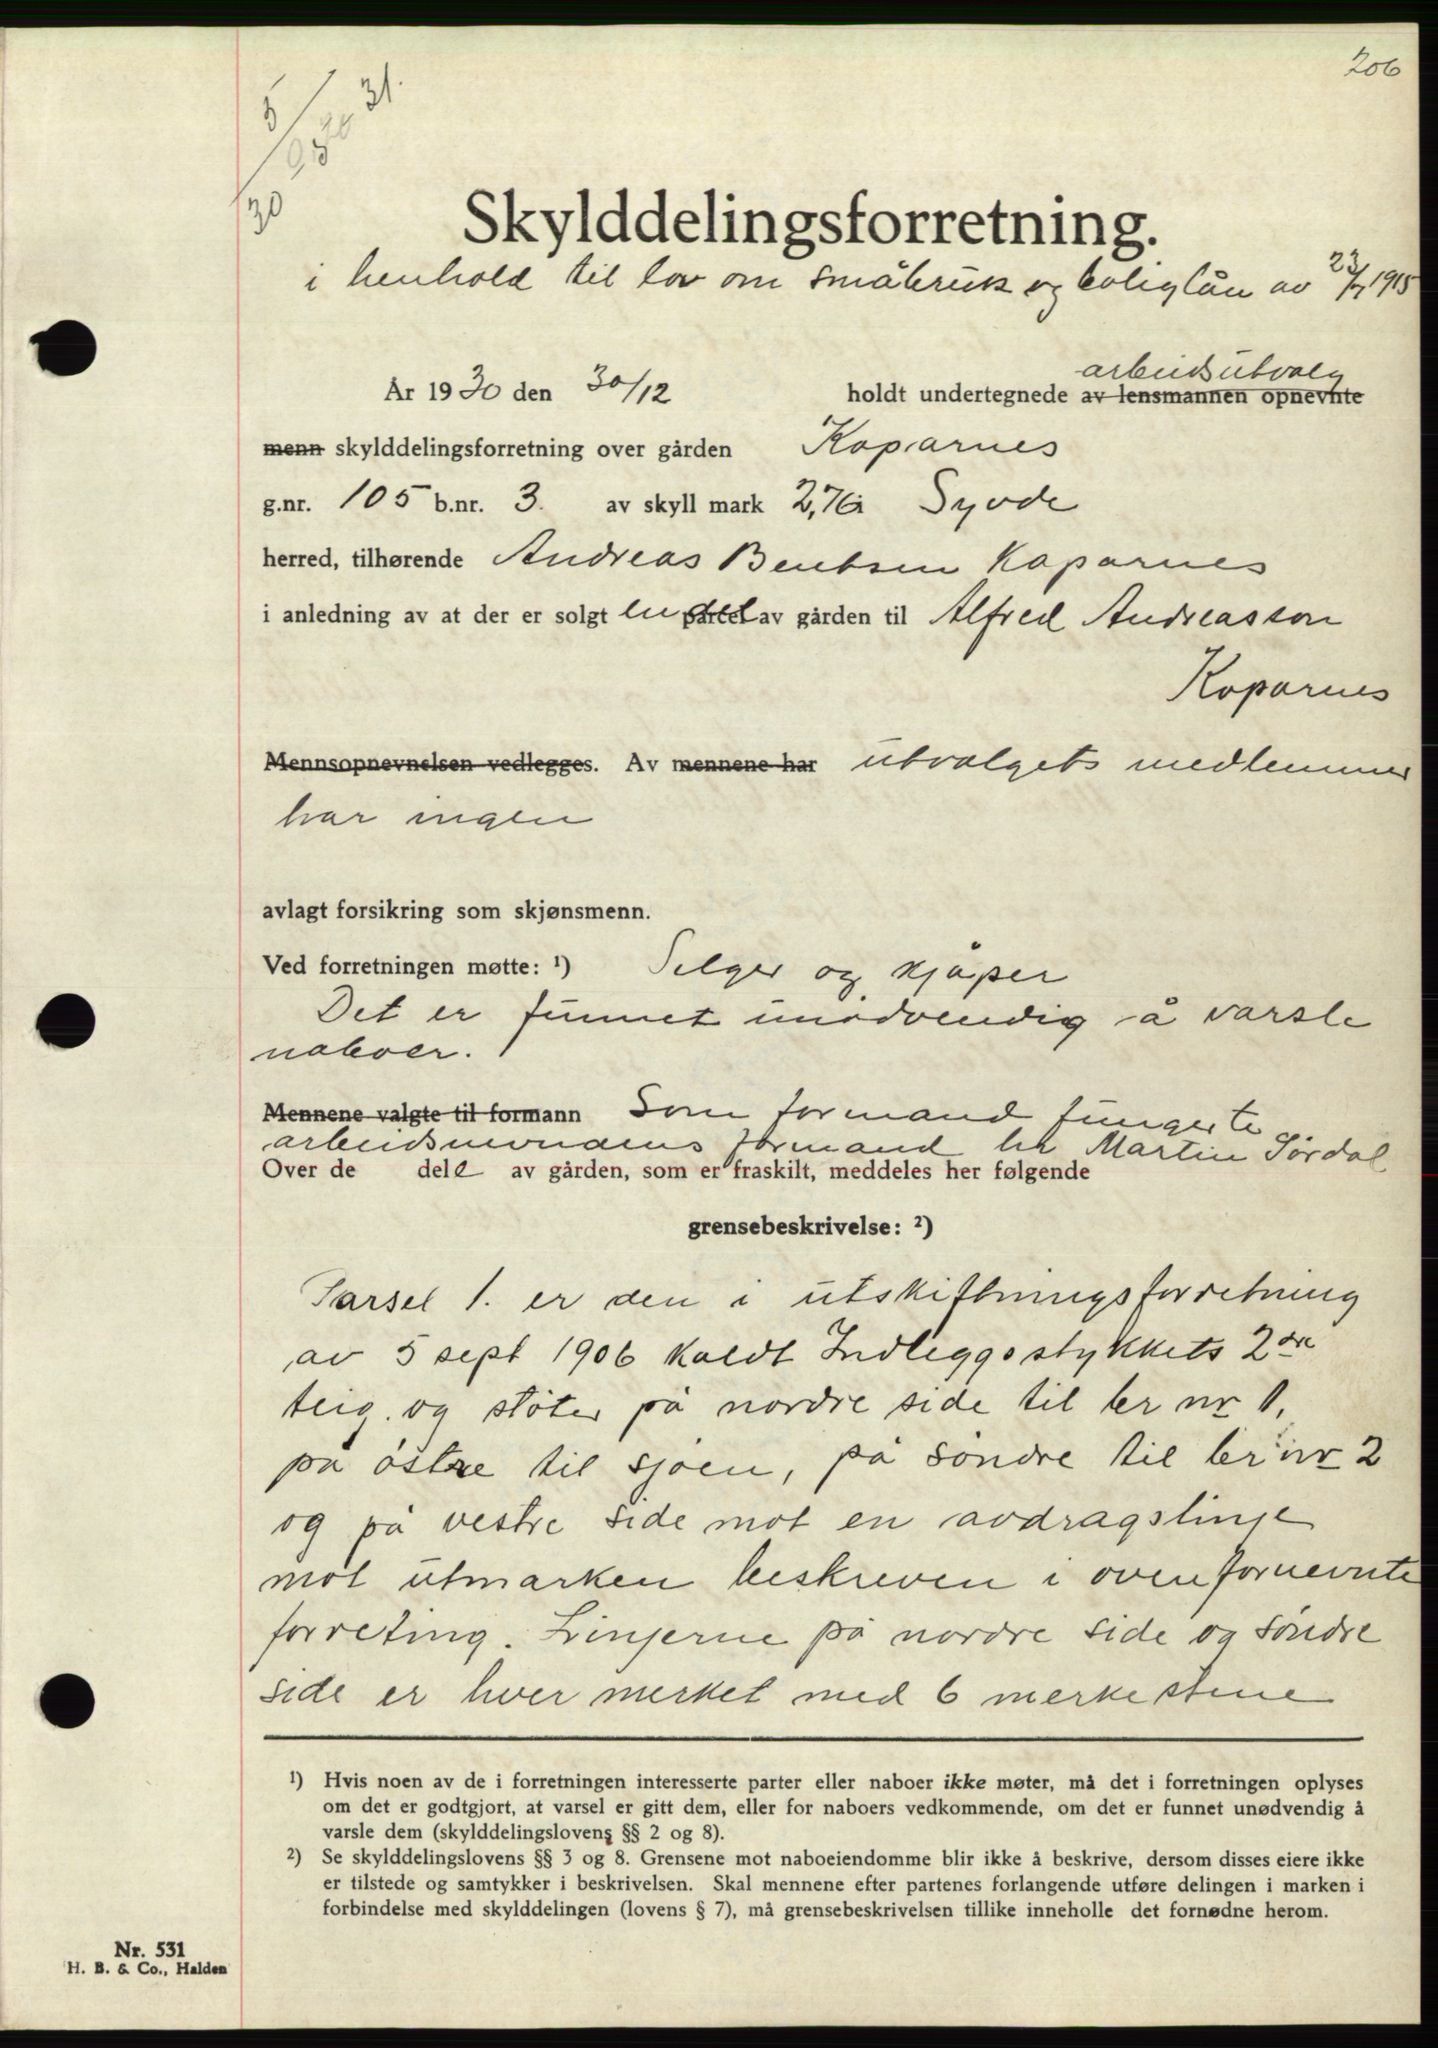 206
5/1 31.
95/30
30
Skylddelingsforretning.
i henhold til lov om småbruk og boliglån av 23/7 1915
arbeidsutvalg
År 1930 den 30/12 holdt undertegnede av lensmannen opnevnte
menn skylddelingsforretning over gården Koparnes
g.nr. 105 b.nr. 3. av skyll mark 2,76 i Syvde
herred, tilhørende Andreas Bentsen Koparnes
i anledning av at der er solgt en del parcel av gården til Alfred Andreasson
Koparnes
Mennsopnevnelsen vedlegges. Av mennene har utvalgets medlemmer
har ingen
avlagt forsikring som skjønsmenn.
Ved forretningen møtte: ¹) Selger og kjøper
Det er funnet unødvendig å varsle
naboer.
Mennene valgte til formann Som formand fungerte
arbeidsnevndens formand hr Martin Sørdal
Over de dele av gården, som er fraskilt, meddeles her følgende
grensebeskrivelse: ²)
Parsel 1. er den i utskiftningsforretning
av 5 sept 1906 kaldt Indleggsstykkets 2dre
teig. og støter på nordre side til br nr 1,
på østre til sjøen, på søndre til br nr 2
og på vestre side mot en avdragslinje
mot utmarken beskreven i ovenfornevnte
forreting. Linjerne på nordre side og søndre
side er hver merket med 6 merkestene
¹) Hvis noen av de i forretningen interesserte parter eller naboer ikke møter, må det i forretningen oplyses
om det er godtgjort, at varsel er gitt dem, eller for naboers vedkommende, om det er funnet unødvendig å
varsle dem (skylddelingslovens §§ 2 og 8).
²) Se skylddelingslovens §§ 3 og 8. Grensene mot naboeiendomme blir ikke å beskrive, dersom disses eiere ikke
er tilstede og samtykker i beskrivelsen. Skal mennene efter partenes forlangende utføre delingen i marken i
forbindelse med skylddelingen (lovens § 7), må grensebeskrivelsen tillike inneholle det fornødne herom.
Nr. 531
H. B. & Co., Halden